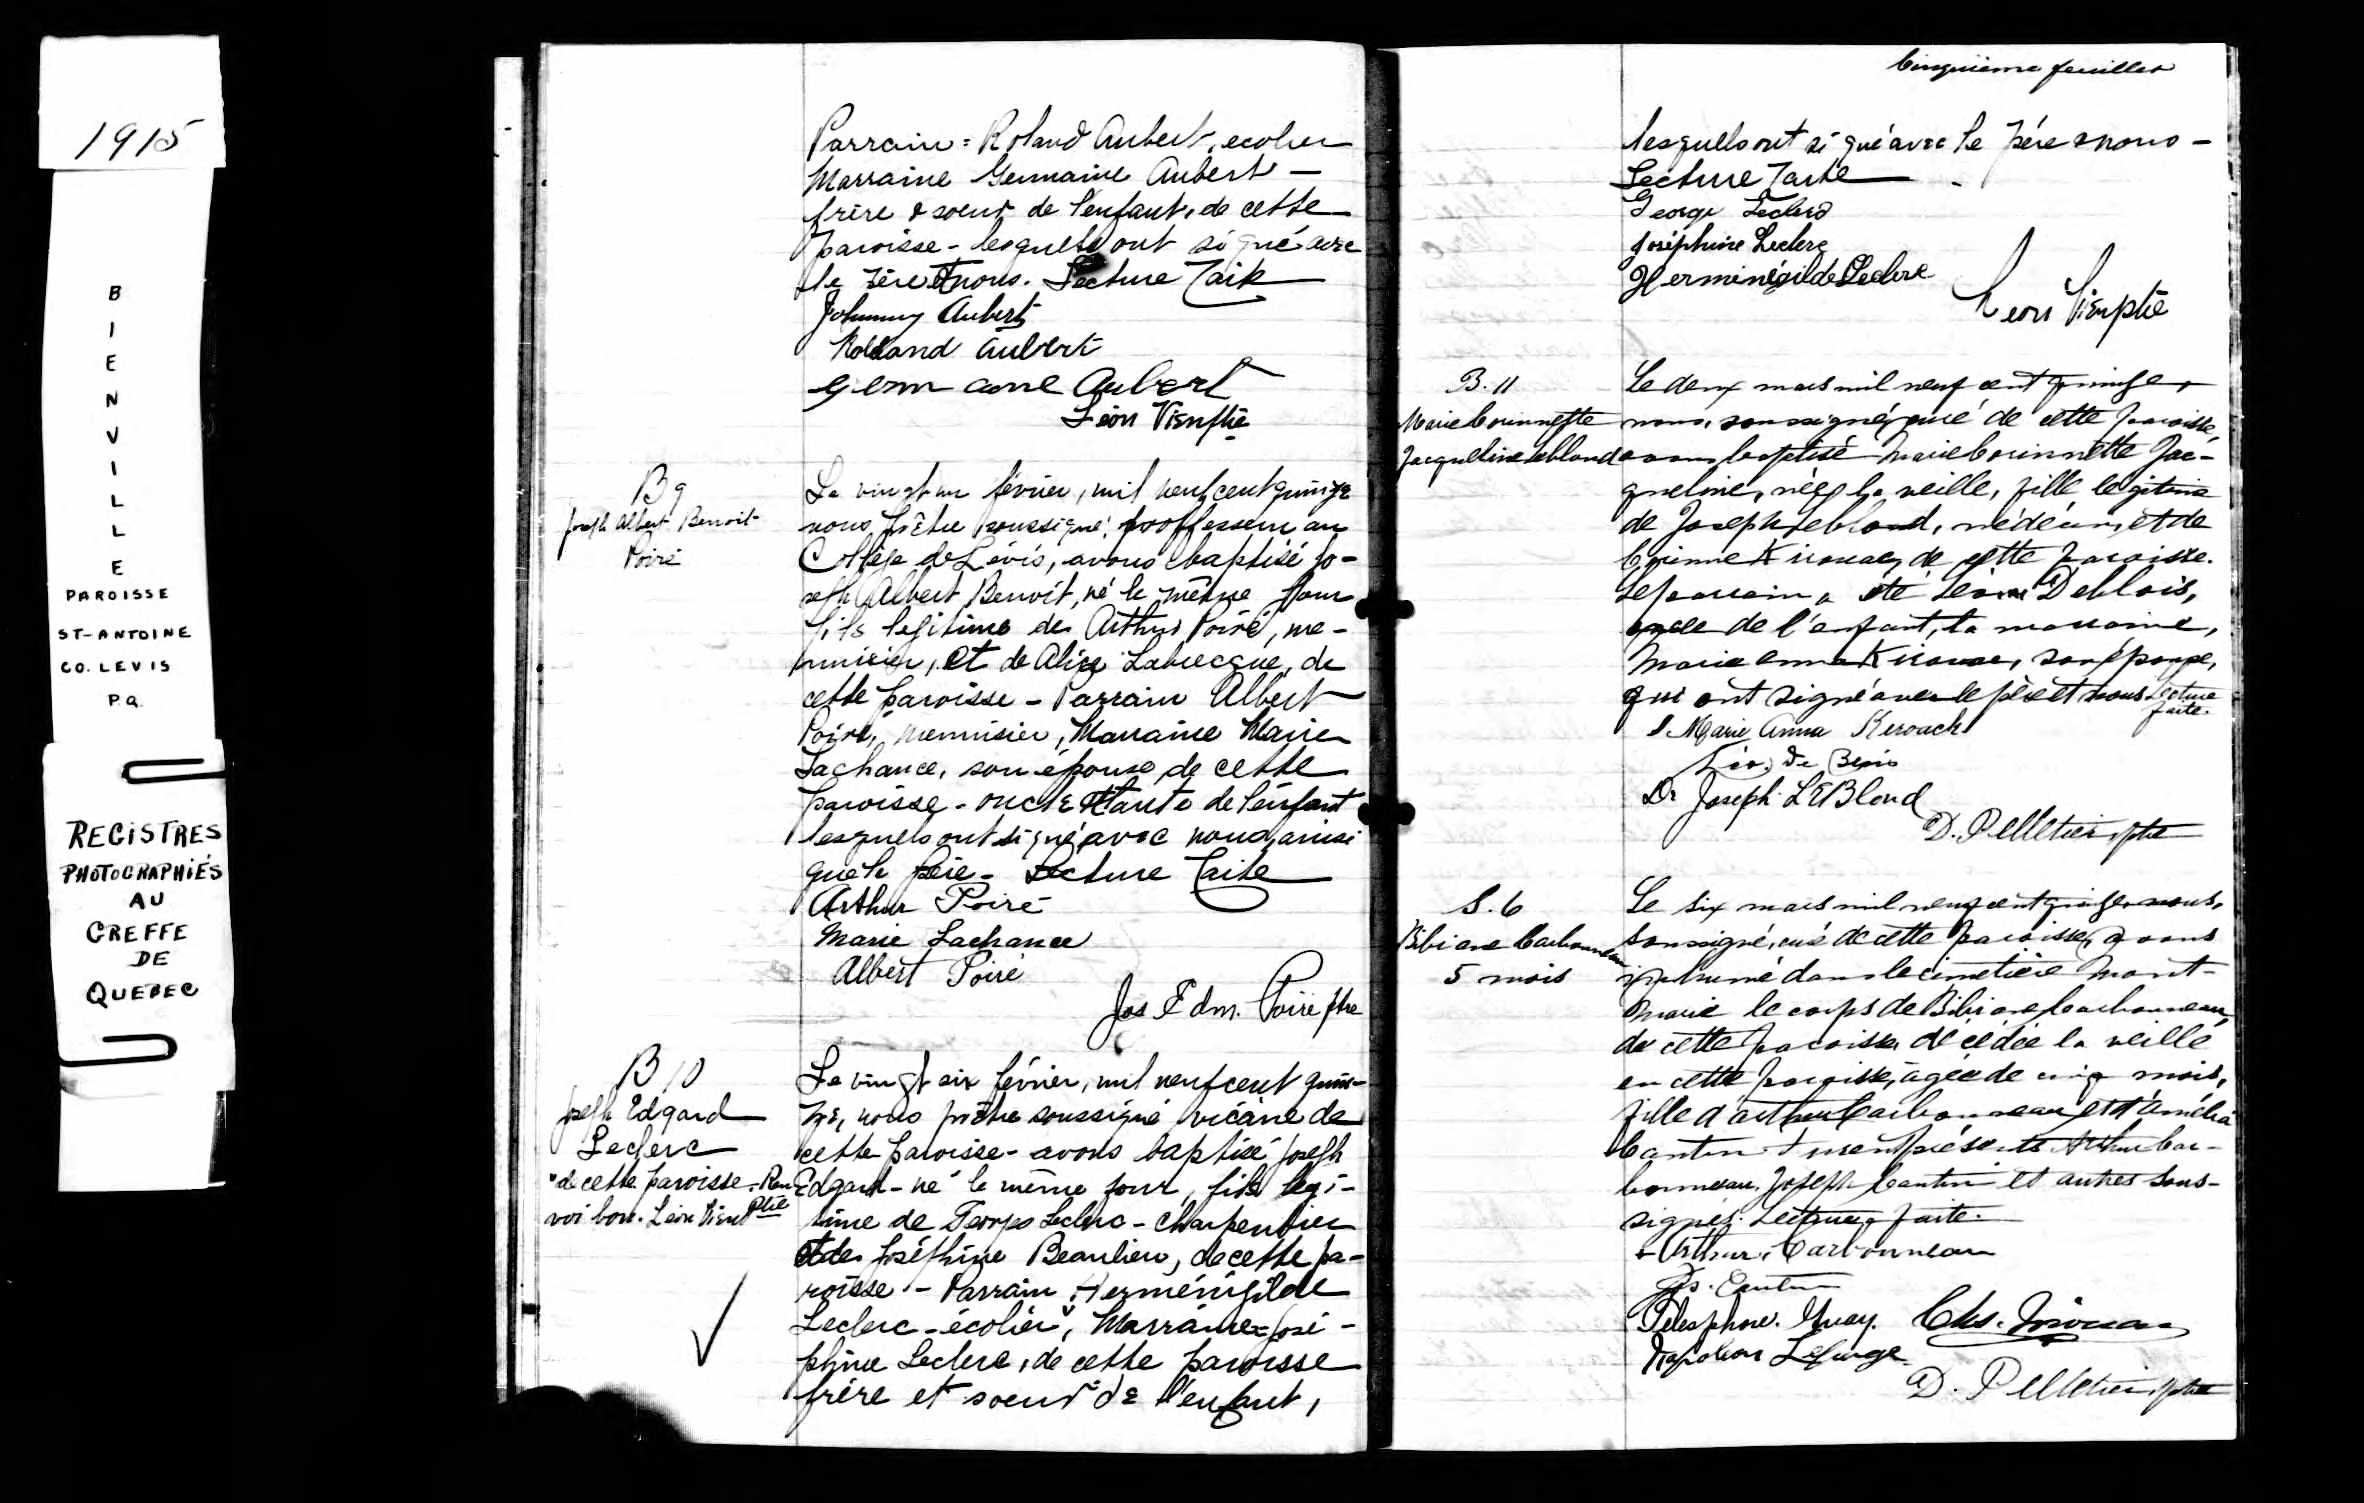 1915
B
I
E
N
V
I
L
L
E
PAROISSE
ST-ANTOINE
CO. LEVIS
P.Q.
REGISTRES
PHOTOGRAPHIÉS
AU
GREFFE
DE
QUEBEC
Parrain = Roland Aubert, ecolier
Marraine Germaine Aubert —
frère & soeur de l'enfant, de cette
paroisse - lesquels ont signé avec
le père et nous. Lecture faite
Johnny Aubert
Rolland Aubert
Germaine Aubert
Léon Vien ptre
B 9
Joseph Albert Benoit
Poiré
Le vingt un février, mil neuf cent quinze
nous prêtre soussigné, professeur au
Collège de Lévis, avons baptisé Jo-
seph Albert Benoit, né le même jour
fils légitime de Arthur Poiré, me-
nuisier, et de Alice Labrecque, de
cette paroisse - Parrain Albert
Poiré, menuisier, Marraine Marie
Lachance, son épouse de cette
paroisse - oncle et tante de l'enfant
lesquels ont signé avec nous, ainsi
que le père - Lecture faite
Arthur Poiré
Marie Lachance
Albert Poiré
Jos Edm. Poiré ptre
B 10
Joseph Edgard
Leclerc
"de cette paroisse. Ren
voi bon. Léon Vien Ptre
Le vingt six février, mil neuf cent quin-
ze, nous prêtre soussigné vicaire de
cette paroisse - avons baptisé Joseph
Edgard - né le même jour, fils légi-
time de Georges Leclerc - Charpentier
et de Joséphine Beaulieu, de cette pa-
roisse - Parrain Herménégilde
Leclerc - écolier", Marraine = José-
phine Leclerc, de cette paroisse
frère et soeur de l'enfant,
Cinquième feuillet
lesquels ont signé avec le père & nous -
Lecture faite
George Leclerc
Joséphine Leclerc
Herménégilde Leclerc
Léon Vien ptre
B. 11
Marie Corinnette
Jacqueline Leblond
Le deux mars mil neuf cent quinze,
nous, soussigné, curé de cette paroisse,
avons baptisé Marie Corinnette Jac-
queline, née la veille, fille légitime
de Joseph Leblond, médecin, et de
Corinne Kirouac, de cette paroisse.
Le parrain a été Léon Deblois,
oncle de l'enfant, la marraine,
Marie Anna Kirouac, son épouse,
qui ont signé avec le père et nous. Lecture
faite.
Marie Anna Kerouack
Léo. De Blois
Dr Joseph LEBlond
D. Pelletier, ptre
S. 6
Bibiane Carbonneau
5 mois
Le six mars mil neuf cent quinze, nous,
soussigné, curé de cette paroisse, avons
inhumé dans le cimetière Mont-
Marie le corps de Bibiane Carbonneau,
de cette paroisse, décédée la veille
en cette paroisse, âgée de cinq mois,
fille d'Arthur Carbonneau et d'Amélia
Cantin. Furent présents Arthur Car-
bonneau, Joseph Cantin et autres sous-
signés. Lecture faite.
Arthur Carbonneau
Js. Cantin
Télesphore Guay. Chs.
Napoléon
D. Pelletier, ptre